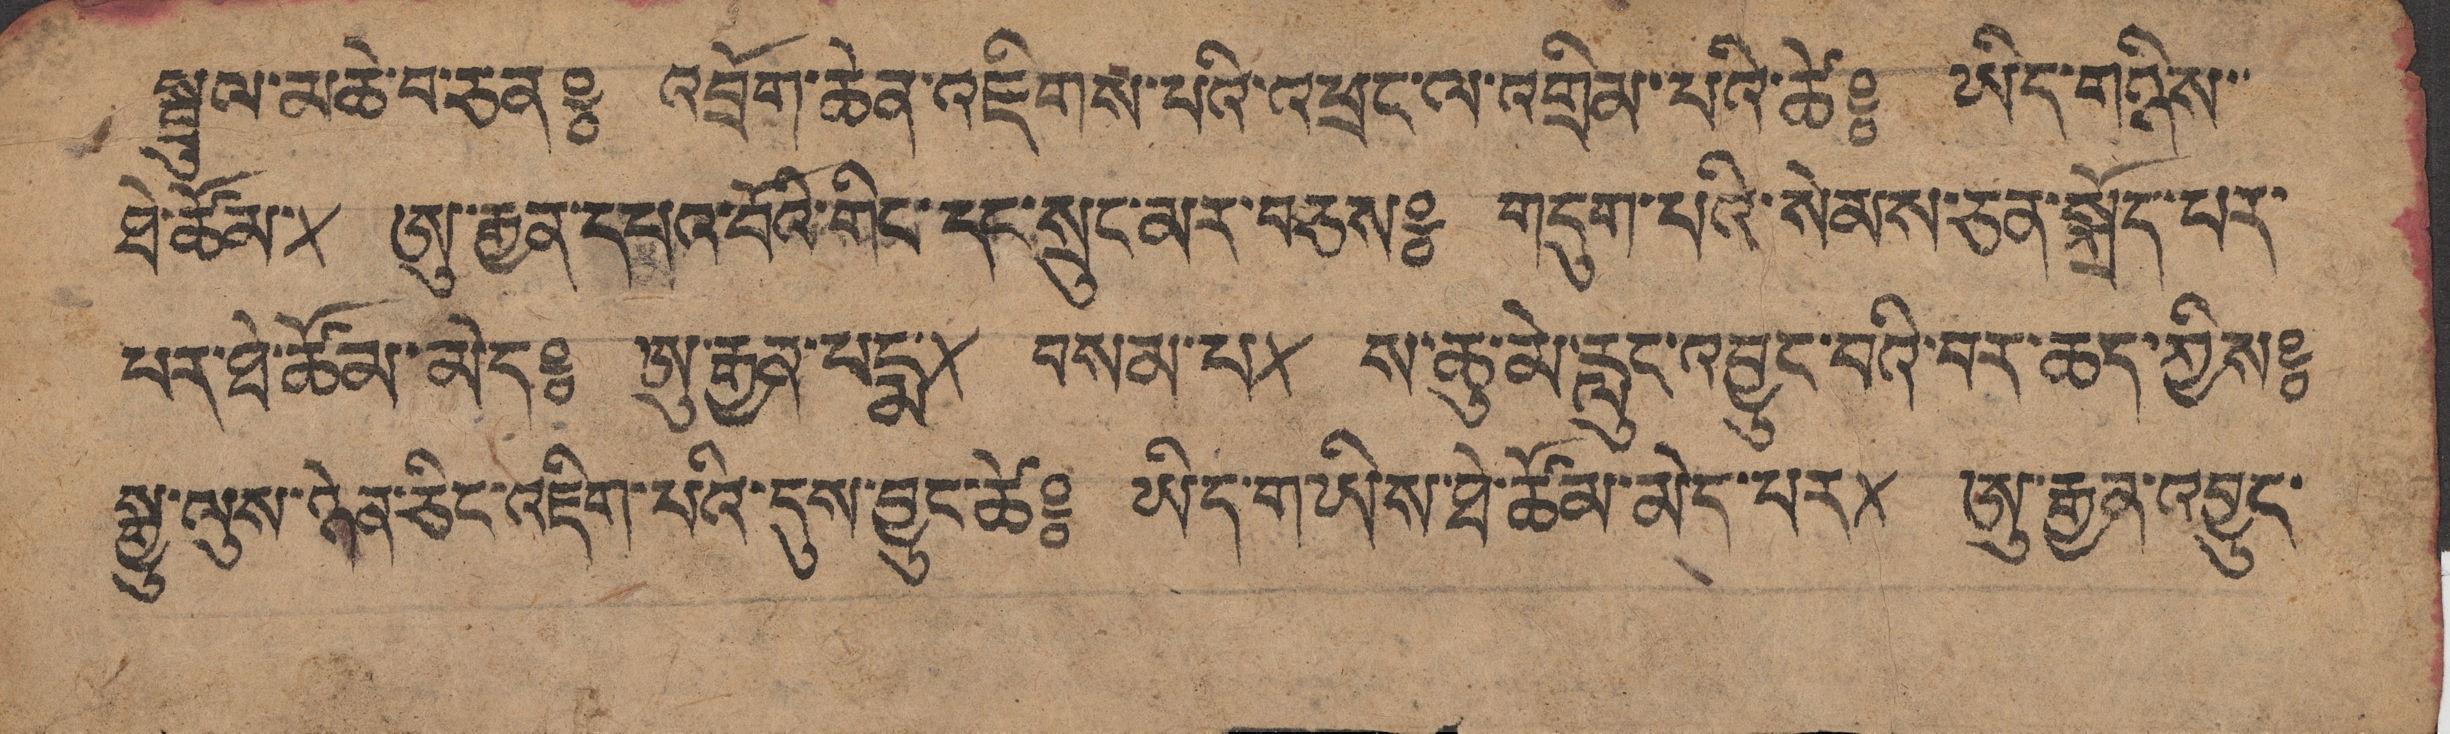 སྦྲུལ་མཆེ་བ་ཅན༔ འབྲོག་ཆེན་འཇིགས་པའི་འཕྲང་ལ་འགྲིམ་པའི་ཚེ༔ ཡིད་གཉིས་
ཐེ་ཚོམ་× ཨུ་རྒྱན་དཔའ་བོའི་གིང་དང་སྲུང་མར་བཅས༔ གདུག་པའི་སེམས་ཅན་སྐྲོད་པར་
པར་ཐེ་ཚོམ་མེད༔ ཨུ་རྒྱན་པདྨ་× བསམ་པ་× ས་ཆུ་མེ་རླུང་འབྱུང་བའི་བར་ཆད་ཀྱིས༔
སྒྱུ་ལུས་ཉེན་ཅིང་འཇིག་པའི་དུས་བྱུང་ཚེ༔ ཡིད་གཉིས་ཐེ་ཚོམ་མེད་པར་× ཨུ་རྒྱན་འབྱུང་